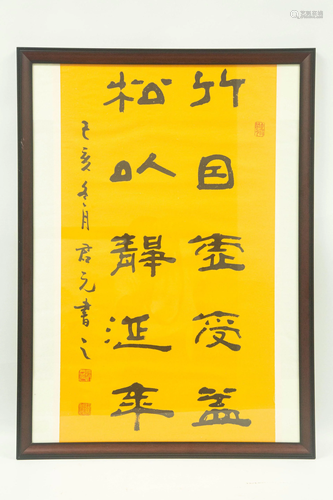 竹因虛受益
松以靜延年
己亥冬月君元書之